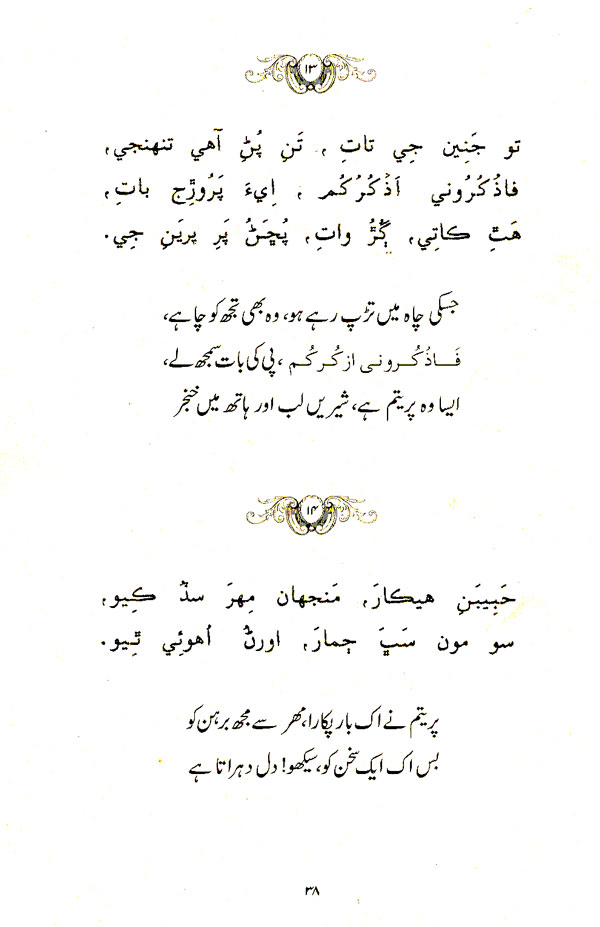 ۱۳
تو جَنِين جِي تاتِ ، تَنِ پُڻِ آهي تنهنجي،
فاذُڪُرُوني اَذڪُرُڪُم ، اِيءَ پَرُوڙِج باتِ،
هَٿِ ڪاتِي، ڳُڙُ واتِ، پُڇَڻُ پَرِ پِريَنِ جِي.
جسکی چاہ میں تڑپ رہے ہو، وہ بھی تجھ کو چاہے،
فَاذُکُرونی ازکُرکُم ، پی کی بات سمجھ لے،
ایسا وہ پریتم ہے، شیریں لب اور ہاتھ میں خنجر
۱۴
حَبِيبَنِ هيڪارَ، مَنجهان مِهرَ سڏُ ڪِيو،
سو مون سَڀَ ڄمارَ، اورڻُ اُهوئِي ٿِيو.
پریتم نے اک بار پکارا، مہر سے مجھ برہن کو
بس اک ایک سخن کو، سیکھو! دل دہراتا ہے
۳۸